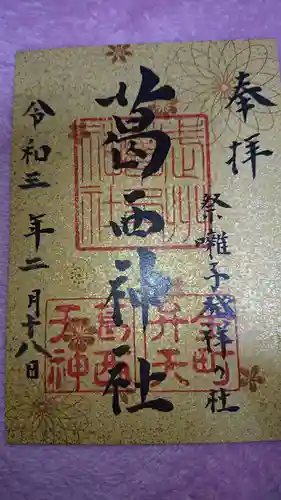 奉拝
祭囃子発祥の社
葛西神社
令和三年二月十八日
葛西
天神
弁天